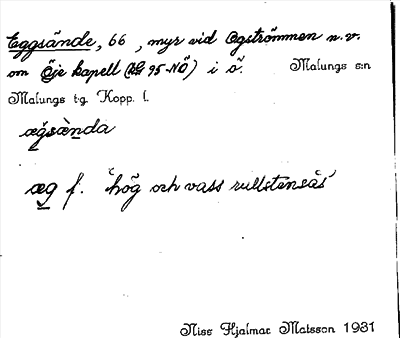 Eggsände, 66, myr vid Ogströmmen n.v.
om Öje kapell (Kbl 95-NÖ) i ö. Malungs s:n
Malungs tg. Kopp. l.
ægsæ̀nda
æg f. "hög och vass rullstensås"
Nils Hjalmar Matsson 1931